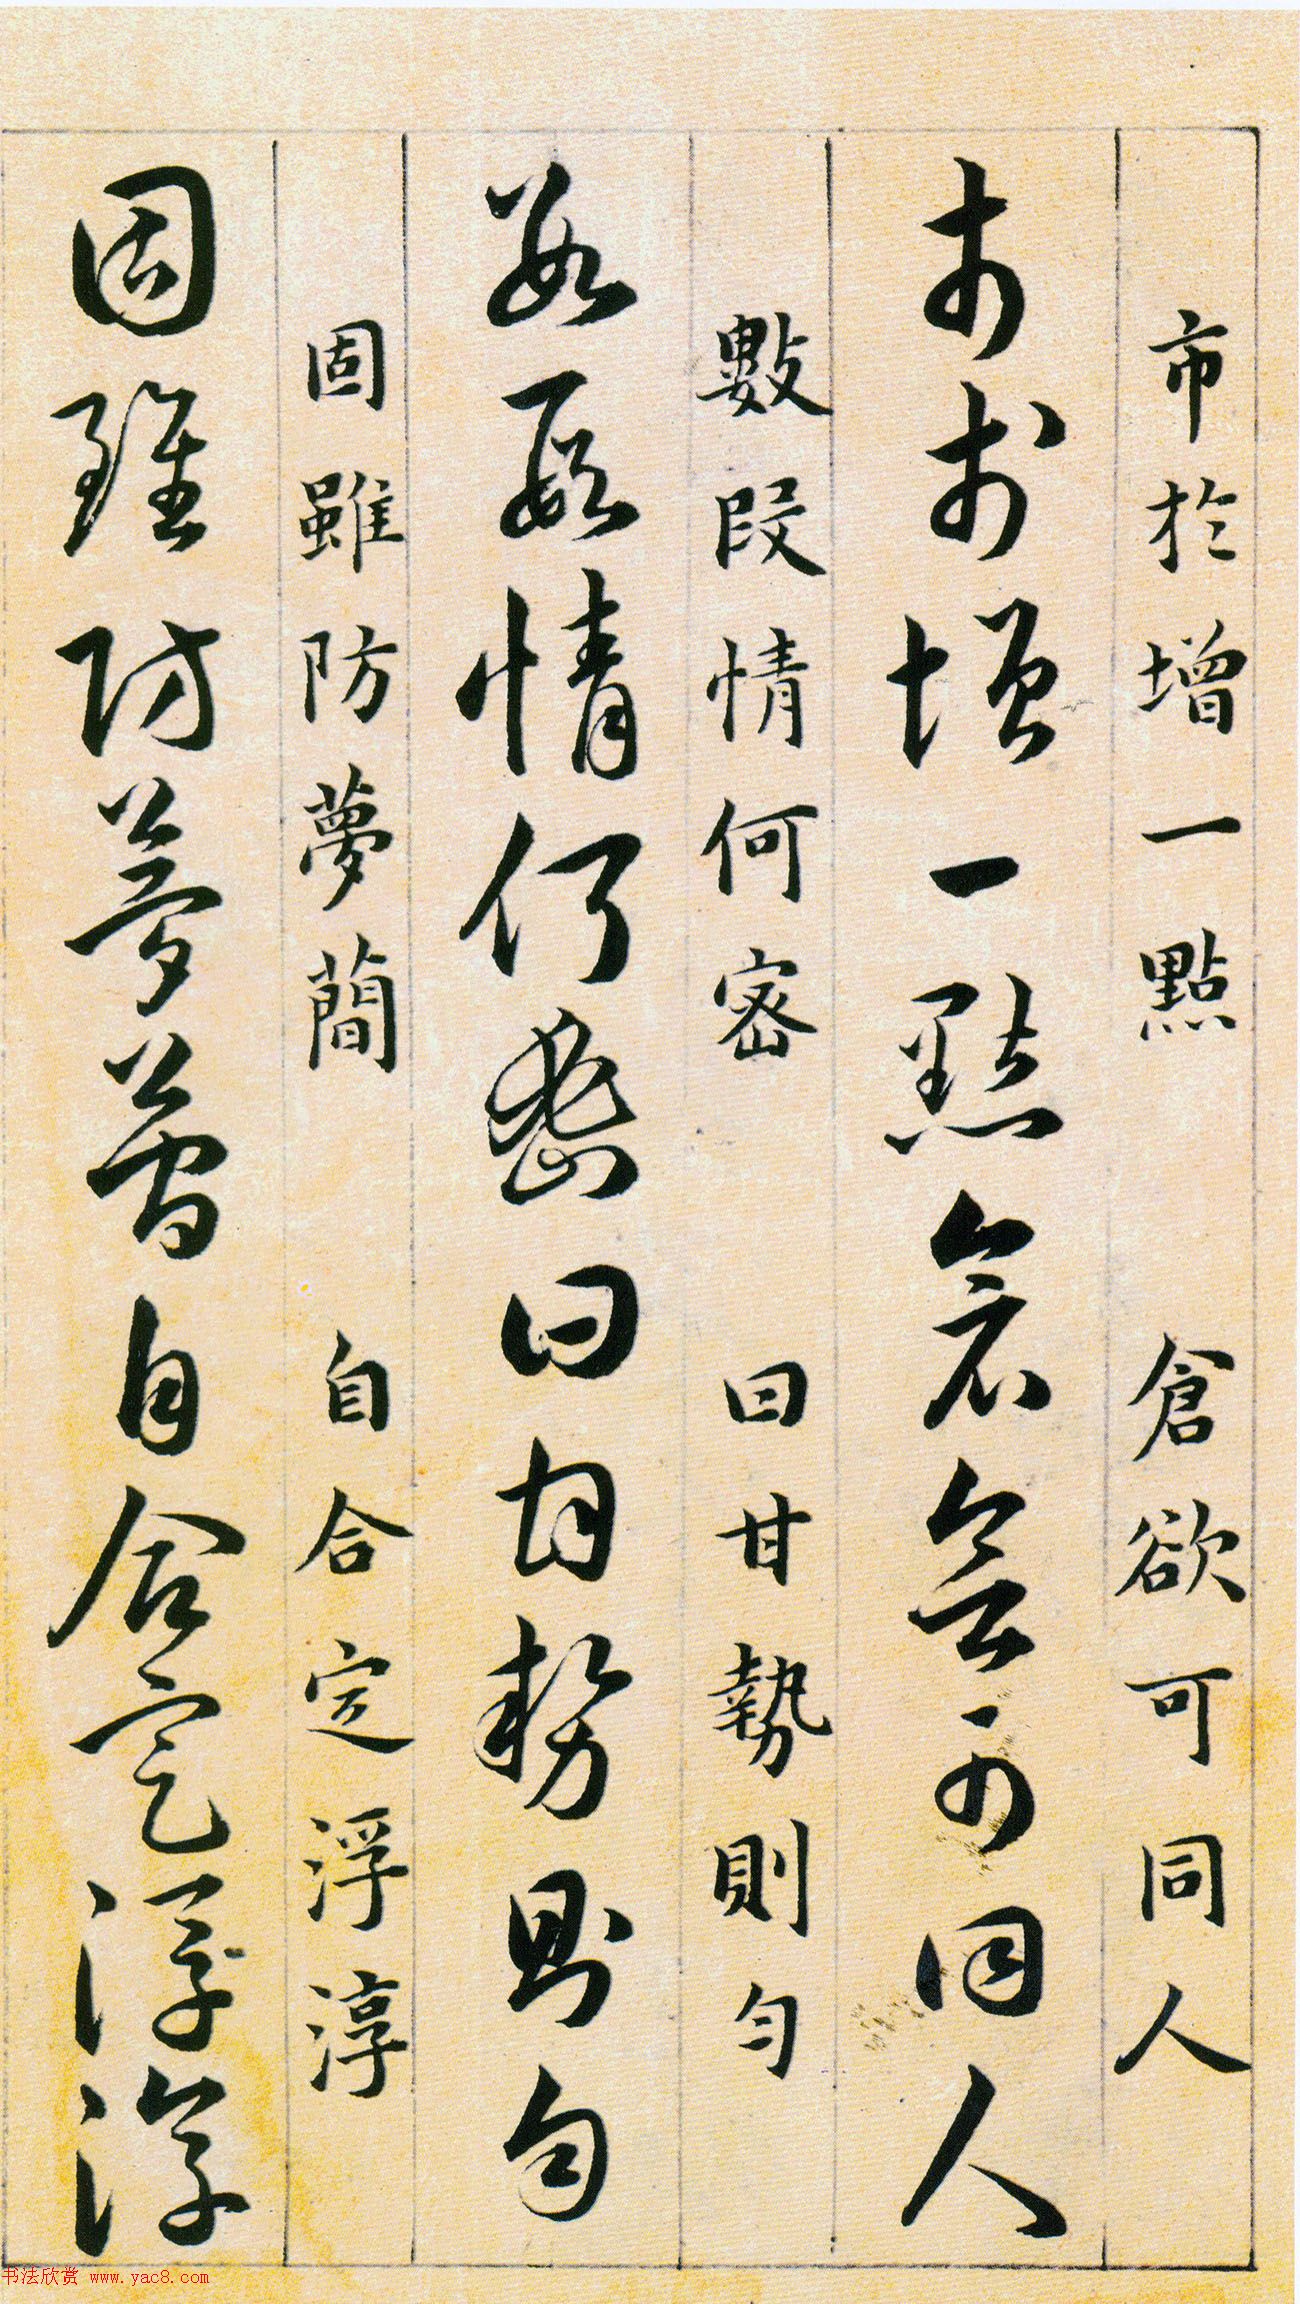 市於增一點 倉欲可同人
市於增一點倉欲可同人
數段情何密 曰甘勢則勻
數段情何密曰甘勢則勻
固雖防夢蕳 自合定浮淳
固雖防夢蕳自合定浮淳
书法欣赏 www.yac8.com